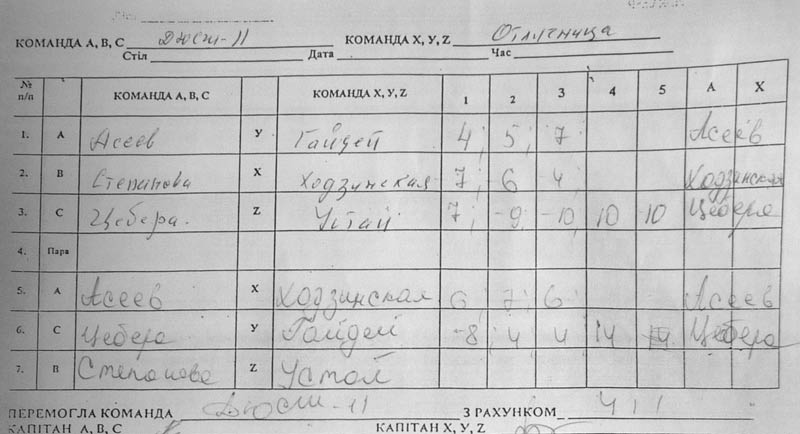 КОМАНДА А, В, С ДЮСШ-11 КОМАНДА Х, У, Z Отличница
Стіл Дата Час
№ п/п КОМАНДА А, В, С КОМАНДА Х, У, Z 1 2 3 4 5 А Х
1. А Асеев У Гайдей 4; 5; 7 Асеев
2. В Степанова Х Ходзинская 7; 6 4; Ходзинская
3. С Цебера. Z Устай 7; -9; -10, 10 10 Цебера
4. Пара
5. А Асеев Х Ходзинская 6; 7; 6; Асеев
6. С Цебера У Гайдей -8; 4 4 14 Цебера
7. В Степанова Z Устай
ПЕРЕМОГЛА КОМАНДА ДЮСШ-11 З РАХУНКОМ 4:1
КАПІТАН А, В, С КАПІТАН Х, У, Z